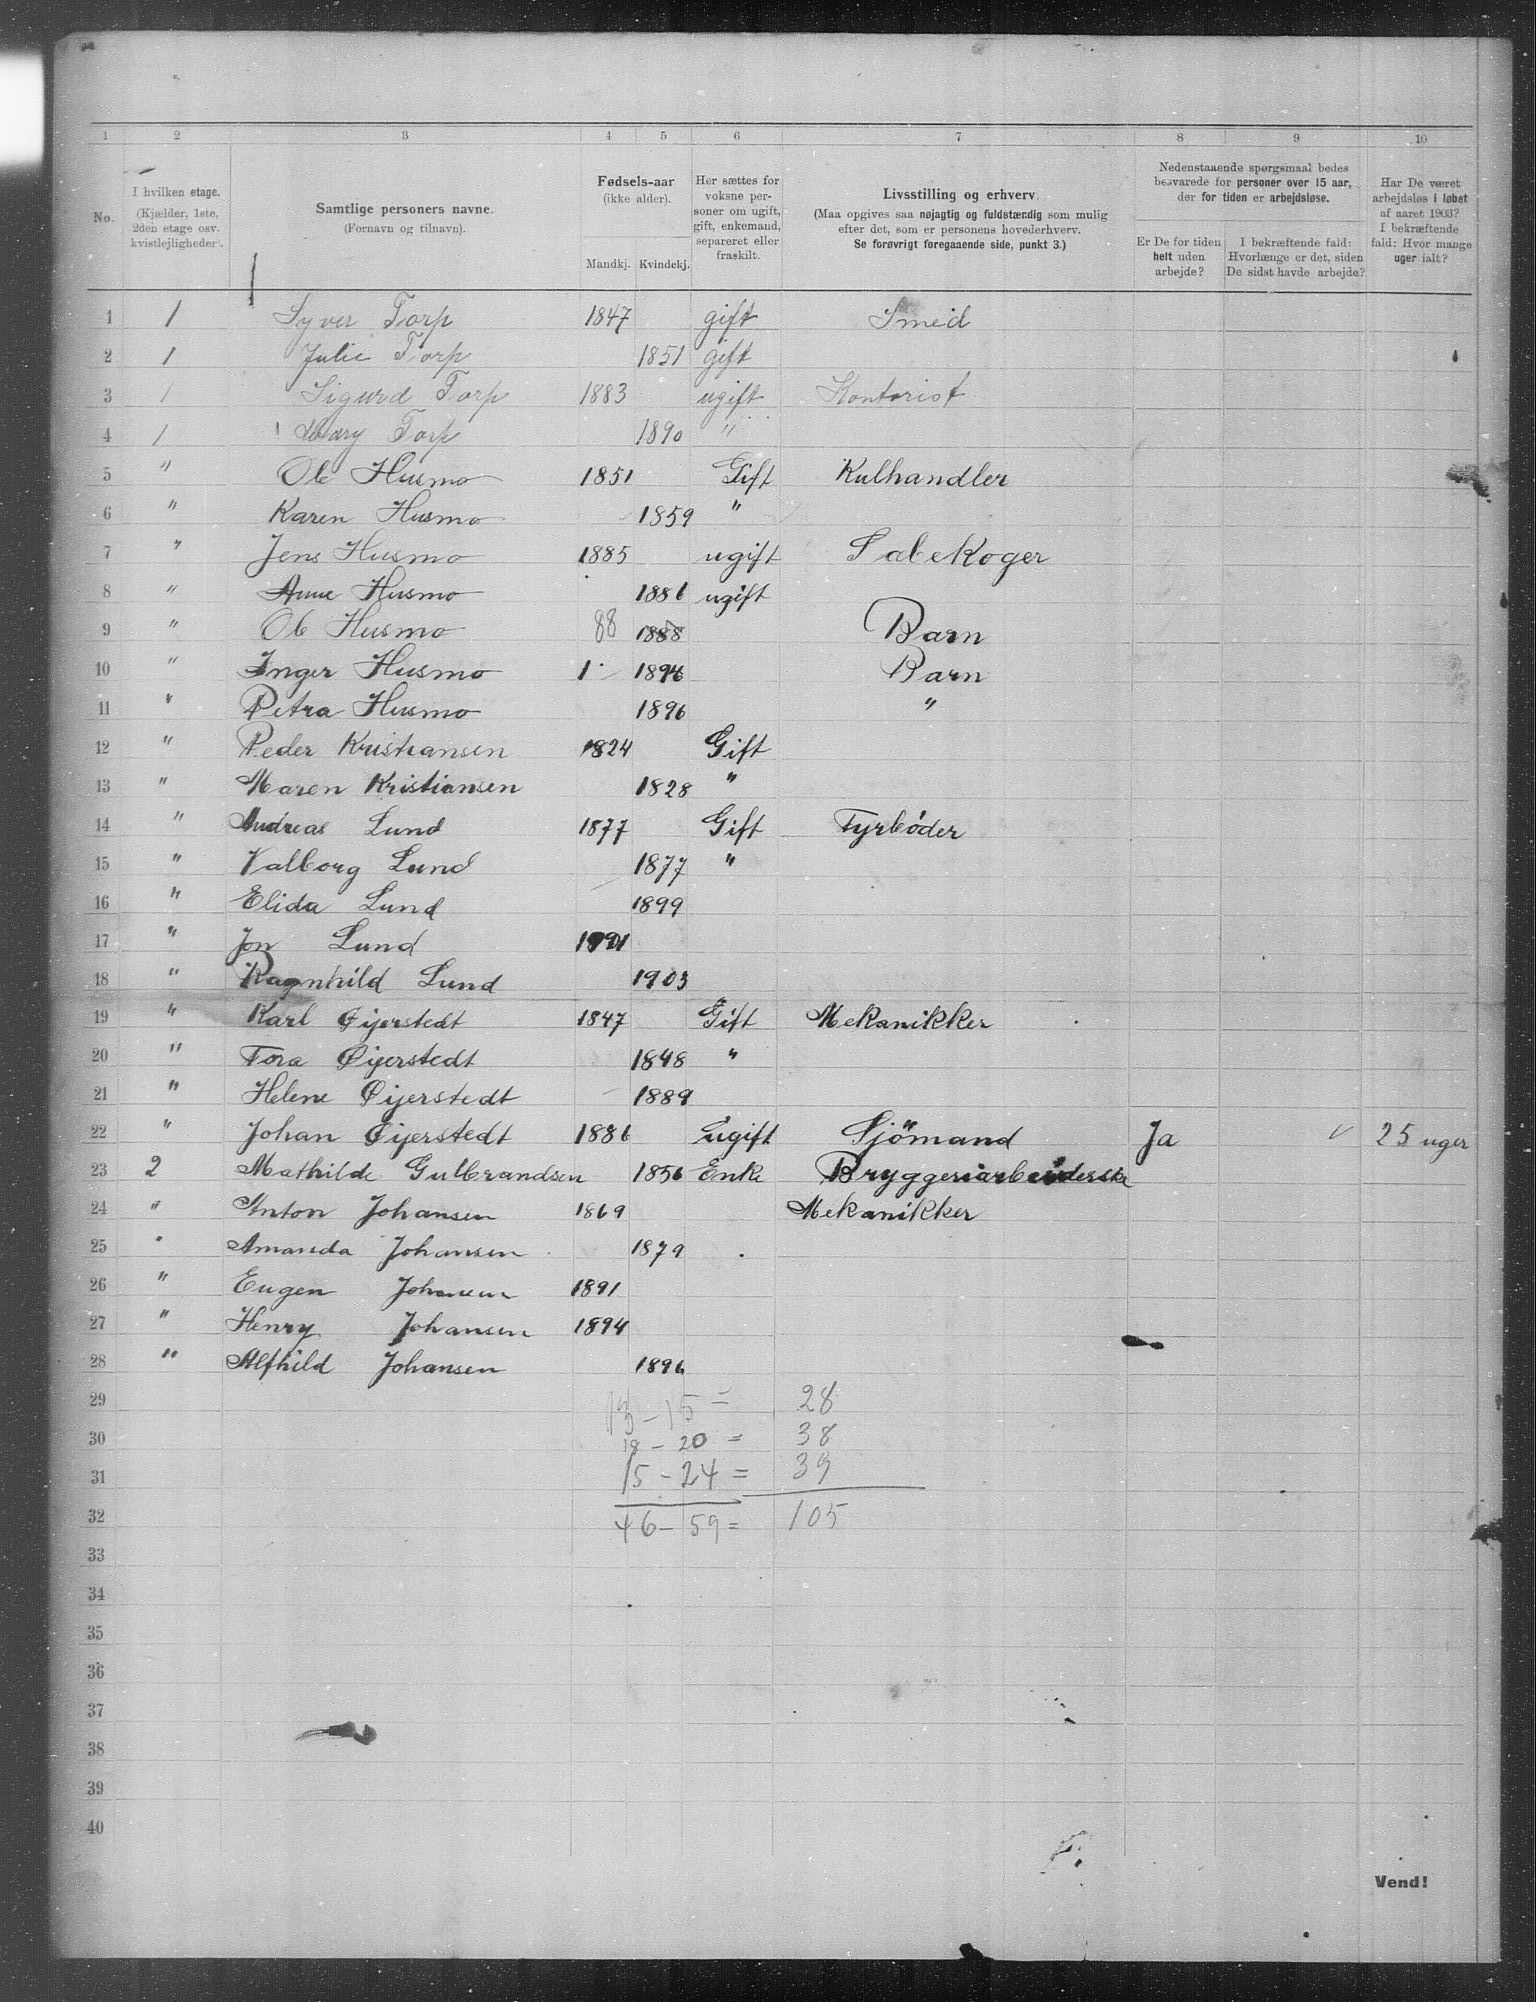 1 2 3 4 5 6 7 8 9 10
No.
I hvilken etage. (Kjælder, 1ste, 2den etage osv. kvistlejligheder).
Samtlige personers navne. (Fornavn og tilnavn).
Fødsels-aar (ikke alder). Mandkj. Kvindekj.
Her sættes for voksne personer om ugift, gift, enkemand, separeret eller fraskilt.
Livsstilling og erhverv. (Maa opgives saa nøjagtig og fuldstændig som mulig efter det, som er personens hovederhverv. Se forøvrigt foregaaende side, punkt 3.)
Nedenstaaende spørgsmaal bedes besvarede for personer over 15 aar, der for tiden er arbejdsløse.
Er De for tiden helt uden arbejde?
I bekræftende fald: Hvorlænge er det, siden De sidst havde arbejde?
Har De været arbejdsløs i løbet af aaret 1903? I bekræftende fald: Hvor mange uger ialt?
1 1 Syver Torp 1847 gift Smed
2 1 Julie Torp 1851 gift
3 1 Sigurd Torp 1883 ugift Kontorist
4 1 Mary Torp 1890 "
5 " Ole Husmo 1851 Gift Kulhandler
6 " Karen Husmo 1859 "
7 " Jens Husmo 1885 ugift Sabekoger
8 " Anne Husmo 1886 ugift
9 " Ole Husmo 88 1888 Barn
10 " Inger Husmo 1 1894 Barn
11 " Petra Husmo 1896 "
12 " Peder Kristiansen 1824 Gift
13 " Maren Kristiansen 1828 "
14 " Andreas Lund 1877 Gift Fyrbøder
15 " Valborg Lund 1877 "
16 " Elida Lund 1899
17 " Jon Lund 1901
18 " Ragnhild Lund 1903
19 " Karl Øijerstedt 1847 Gift Mekanikker
20 " Tora Øijerstedt 1848 "
21 " Helene Øijerstedt 1889
22 " Johan Øijerstedt 1886 ugift Sjömand Ja 25 uger
23 2 Mathilde Gulbrandsen 1856 Enke Bryggeriarbeiderske
24 " Anton Johansen 1869 Mekanikker
25 " Amanda Johansen 1879
26 " Eugen Johansen 1891
27 " Henry Johansen 1894
28 " Alfhild Johansen 1896
29 13 - 15 = 28
30 18 - 20 = 38
31 15 - 24 = 39
32 46 - 59 = 105
33
34
35
36
37
38
39
40
Vend!